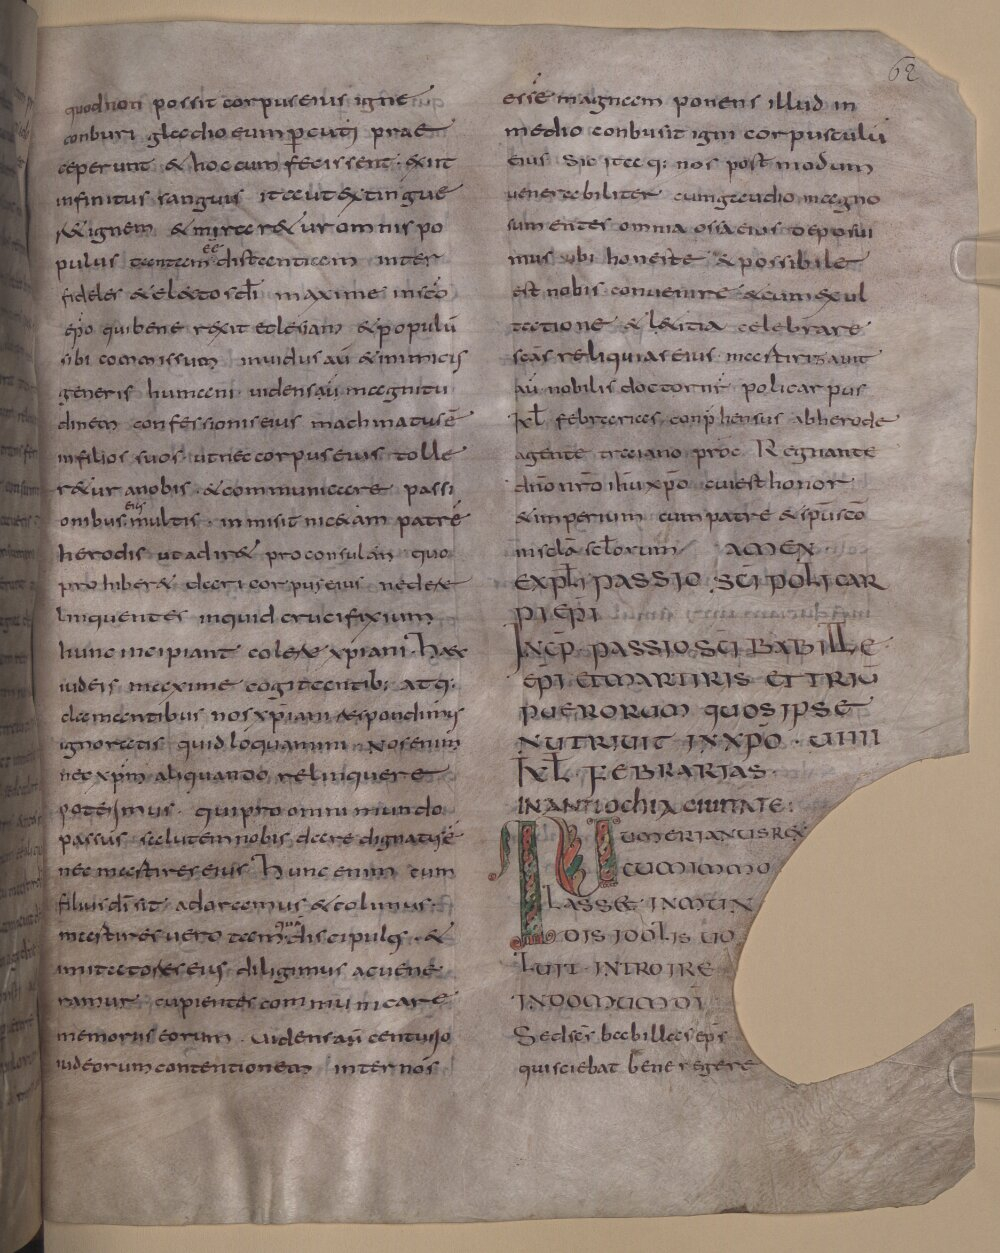 62
quod non possit corpus eius igne
conburi gladio eum ꝑcuti prae
ceperunt & hoc cum fecissent · exiit
infinitus sanguis ita ut extingue
r& ignem & mirar&ur omnis po
pulus tantam ee distantiam inter
fideles & el&os scł maxime in scō
ep̄o qui bene rexit eclesiam & populū
sibi commissum inuidus aū & inimicis
generis humani uidens aū magnitu
dinem confessionis eius machinatus ē
in filios suos ut nec corpus eius tolle
r&ur a nobis · & communicare passi
onibus eius multis · inmisit nic&am patrē
herodis ut adir& proconsulam quo
prohiber& dari corpus eius ne dere
linquentes inquid crucifixium
hunc incipiant colere xpiani · Haec
iudeis maxime cogitantib; atq·
clamantibus nos xp̄iani respondimus
ignoratis quid loquamini Nos enim
nec xp̄m aliquando relinquere
potesimus · qui pro omni mundo
passus salutem nobis dare dignatus ē
nec martires eius Hunc enim cum
filius dī sit adoramus & colimus ·
martires uero tamquā discipulos · &
imitatores eius diligimus ac uene
ramur cupientes communicare
memoriis eorum · uidens aū centurio
iudeorum contentionem inter nos
esse magnam ponens illud in
medio conbusit igni corpusculū
eius Sic itaq: nos post modum
uenerabiliter cum gaudio magno
sumentes omnia ossa eius deposui
mus ubi honeste & possibile
est nobis conuenire & cum exul
tatione & laetitia celebrare
scās reliquias eius · martirizauit
aū nobilis doctor nr̄ policarpus
kł februarias conp̄hensus ab herode
agente traiano proc̄ Regnante
dn̄o nr̄o ihū xp̄o cui est honor
& imperium cum patre & sp̄u scō
in scła scłorum AMEN
EXPŁ PASSIO SC̄I POLICAR
PI EP̄I
INCP̄ · PASSIO SC̄I BABILLE ·
EP̄I ET MARTIRIS ET TRIŪ
PUERORUM QUOS IPSE
NUTRIUIT IN XP̄O · UIIII
KŁ · FEBRARIAS
IN ANTIOCHIA CIUITATE :
NUMERIANUS REX
CUM IMMO
LASSET · IN MUN
DIS IDOLIS UO
LUIT · INTROIRE
IN DOMUM DĪ
Sed scs̄ babillas ep̄s
qui sciebat bene regere